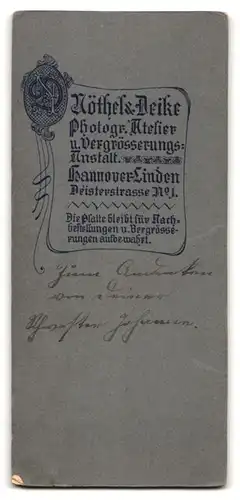 Nöthel & Deike
Photogr. Atelier
u. Vergrösserungs-
Anstalt.
Hannover-Linden
Deisterstrasse No 1.
Die Platte bleibt für Nach-
bestellungen u. Vergrösse-
rungen aufbewahrt.
Zum Andenken
von Deiner
Schwester Johanne.